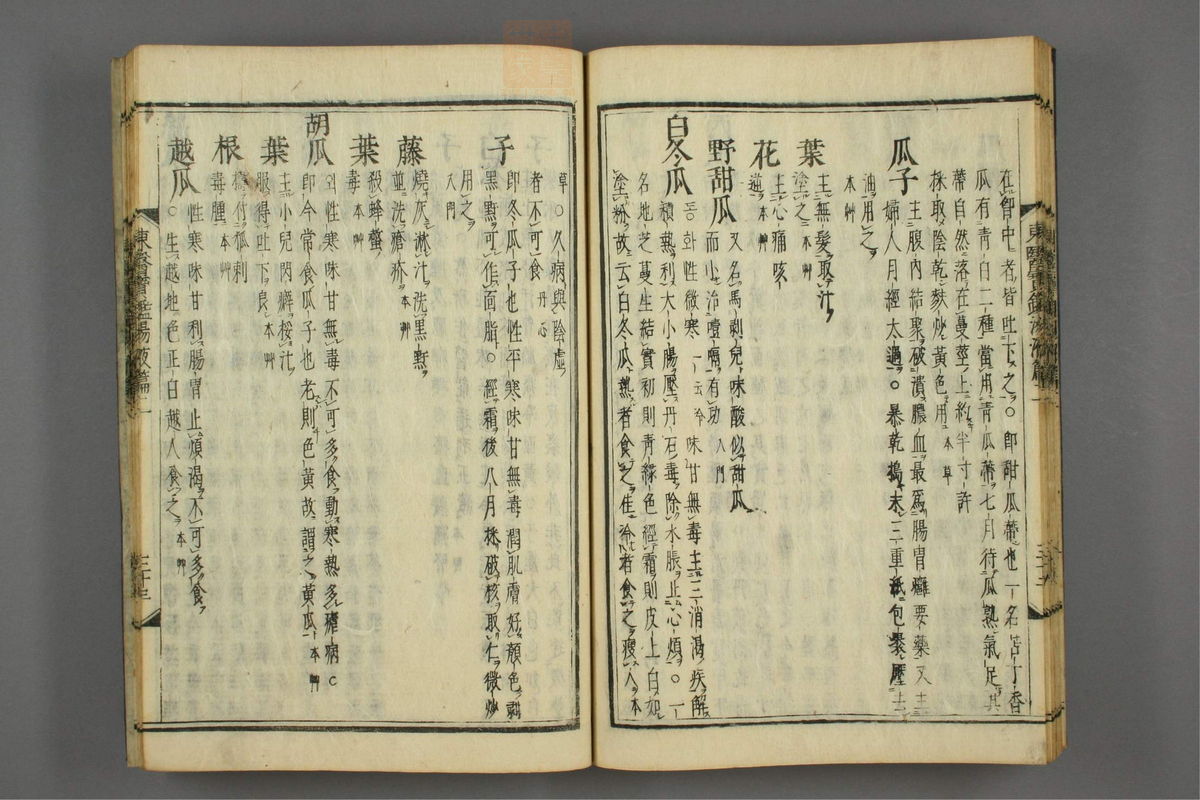 在胷中者皆吐下之○卽甜瓜蔕也一名苦丁香
瓜有青白二種當用青瓜蔕七月待瓜熟氣足其
蔕自然落在蔓莖上約半寸許
採取陰乾麩炒黃色用 本草
瓜子 主腹內結聚破潰膿血最爲腸胃癰要藥又主
婦人月經太過○暴乾搗末三重紙包裹壓去
油用之
本艸
葉 主無髮取汁
塗之 本艸
花 主心痛咳
逆 本艸
野甜瓜 又名馬剥兒味酸似甜瓜
而小治噎膈有功 入門
白冬瓜 동화性微寒 一云冷 味甘無毒主三消渴疾解
積熱利大小腸壓丹石毒除水脹止心煩○一
名地芝蔓生結實初則青緑色經霜則皮上白如
塗粉故云白冬瓜熱者食之佳冷者食之瘦人 本
草○久病與陰虛
者不可食 丹心
子 卽冬瓜子也性平寒味甘無毒潤肌膚好顔色剥
黑䵟可作面脂○經霜後八月採破核取仁微炒
用之
入門
藤 燒灰淋汁洗黑䵟
並洗瘡疥 本艸
葉 殺蜂螫
毒 本艸
胡瓜 외性寒味甘無毒不可多食動寒熱多瘧病○
卽今常食瓜子也老則色黃故謂之黃瓜 本艸
葉 主小兒閃癖挼汁
服得吐下良 本艸
根 搗付狐刺
毒腫 本艸
越瓜 ○性寒味甘利腸胃止煩渴不可多食
○生越地色正白越人食之 本艸
東醫寶鑑湯液篇二